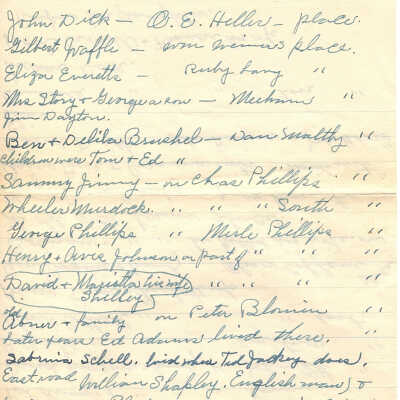 John Dick - O. E. Heller - place.
Gilbert Waffle - Wm Weimer's place.
Eliza Everetts - Ruby Lang "
Mrs Story + George a son - Mecham "
Jim Dayton.
Ben + Delila Brushel - Dan Smalthy "
children were Tom + Ed "
Sammy Jimmy - on Chas Phillips "
Wheeler Murdock. " " " South "
George Phillips " Merle Phillips "
Henry + Avis Johnson on part of " " "
David + his wife " " " "
Shilley
old Abner + family on Peter Blowers "
Later years Ed Adams lived there.
Sabrina Schell, lived where Ted Jackey does.
East road William Shapley, English man, +